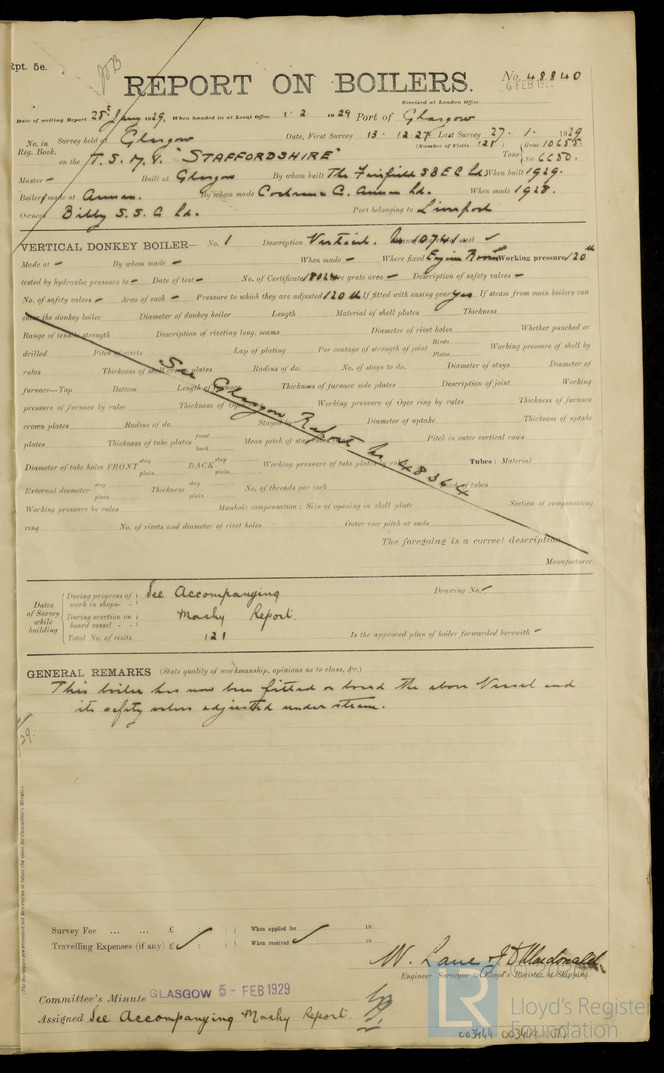 Rpt. 5e.
REPORT ON BOILERS.
No. 48840
6 FEB 192
Received at London Office
Date of writing Report 28th Jany 1929. When handed in at Local Office 1. 2. 1929 Port of Glasgow
No. in Reg. Book. Survey held at Glasgow Date, First Survey 13. 12. 27 Last Survey 27. 1. 1929
(Number of Visits 121)
on the T.S.M.V. "STAFFORDSHIRE" Tons { Gross 10655 Net 6650.
Master - Built at Glasgow By whom built The Fairfield S.B & E C Ld. When built 1929.
Boiler made at Annan. By whom made Cochran & C. Annan Ld. When made 1928.
Owners Bibby S.S. C Ld. Port belonging to Liverpool
VERTICAL DONKEY BOILER— No. 1 Description Vertical. No 10741
Made at - By whom made - When made - Where fixed Engine Room Working pressure 120 lb
tested by hydraulic pressure to - Date of test - No. of Certificate 18024 Fire grate area - Description of safety valves -
No. of safety valves - Area of each - Pressure to which they are adjusted 120 lb If fitted with easing gear yes If steam from main boilers can
enter the donkey boiler Diameter of donkey boiler Length Material of shell plates Thickness
Range of tensile strength Description of riveting long. seams Diameter of rivet holes Whether punched or
drilled Pitch of rivets Lap of plating Per centage of strength of joint Rivets Plates Working pressure of shell by
rules Thickness of shell crown plates Radius of do. No. of stays to do. Diameter of stays Diameter of
furnace—Top Bottom Length of furnace Thickness of furnace side plates Description of joint Working
pressure of furnace by rules Thickness of Ogee ring Working pressure of Ogee ring by rules Thickness of furnace
crown plates Radius of do. Stayed by Diameter of uptake Thickness of uptake
plates Thickness of tube plates front back Mean pitch of stay tubes Pitch in outer vertical rows
Diameter of tube holes FRONT stay plain BACK stay plain Working pressure of tube plates by rules Tubes: Material
External diameter stay plain Thickness stay plain No. of threads per inch Pitch of tubes
Working pressure by rules Manhole compensation: Size of opening in shell plate Section of compensating
ring No. of rivets and diameter of rivet holes Outer row pitch at ends
See Glasgow Report No 48364
The foregoing is a correct description,
Manufacturer.
Dates of Survey while building
During progress of work in shops - - See Accompanying Drawing No. /
During erection on board vessel - - Machy Report.
Total No. of visits 121 Is the approved plan of boiler forwarded herewith -
GENERAL REMARKS (State quality of workmanship, opinions as to class, &c.)
This boiler has now been fitted on board the above Vessel and
its safety valves adjusted under steam.
29.
Survey Fee ... ... £ : : When applied for 19
Travelling Expenses (if any) £ : : When received 19
W. Lane & J D Macdonald.
Engineer Surveyor to Lloyd's Register of Shipping.
Committee's Minute GLASGOW 5 - FEB 1929
Assigned See Accompanying Machy Report.
LR
Lloyd's Register
Foundation